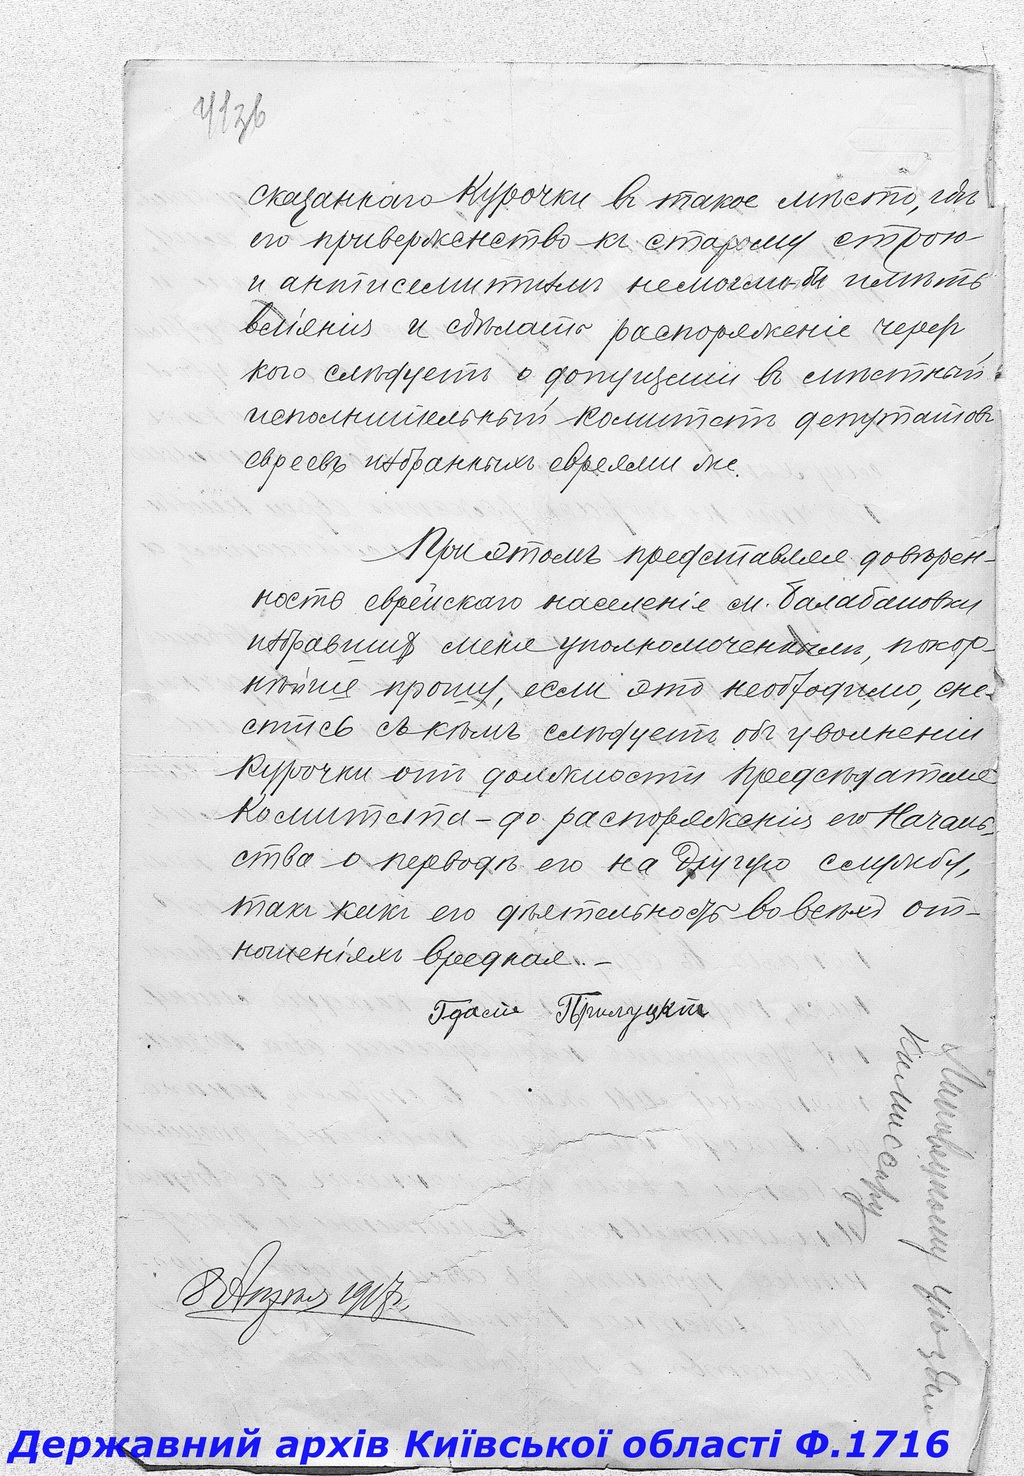 сказаннаго Курочки въ такое мѣсто, гдѣ
его приверженство къ старому строю
и антисемитизмъ немогло-бы имѣть
вліянія и сдѣлать распоряженіе черезъ
кого слѣдуетъ о допущеніи въ мѣстный
исполнительный комитетъ депутатовъ
евреевъ избранныхъ евреями же.
При этомъ представляя довѣрен-
ность еврейскаго населенія м. Балабановки
избравшія меня уполномоченнымъ, покор-
нѣйше прошу, если это необходимо, сне-
стись съ кѣмъ слѣдуетъ объ увольненіи
Курочки отъ должности Предсѣдателя
Комитета - до распоряженія его Началь-
ства о переводѣ его на другую службу,
такъ какъ его дѣятельность во всѣхъ от-
ношеніяхъ вредная. -
Прилуцкій
8 Апрѣля 1917 г.
Липовецкому уѣздн
Комиссару
Державний архів Київської області Ф.1716